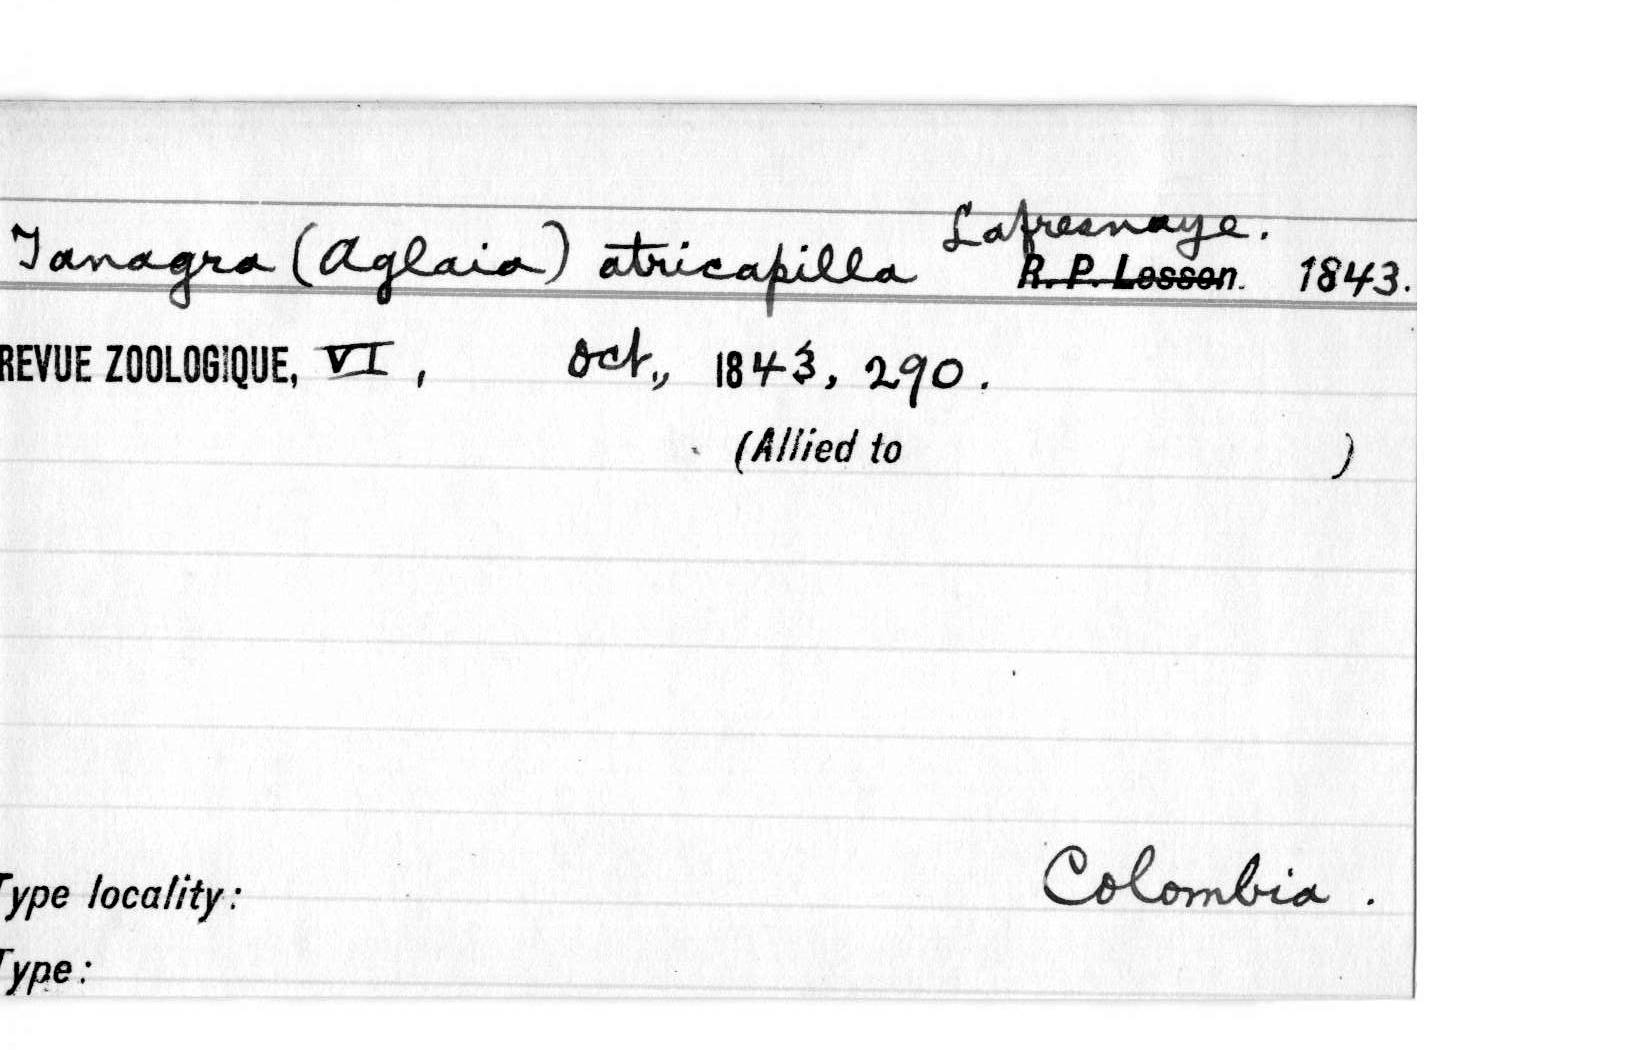 Lafresnaye.
Tanagra (Aglaia) atricapilla R. P. Lesson. 1843.
REVUE ZOOLOGIQUE, VI, Oct., 1843, 290.
(Allied to )
Type locality: Colombia.
Type: